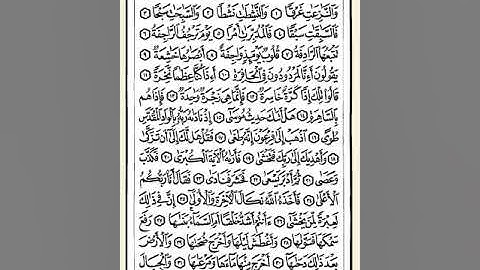 وَٱلنَّٰزِعَٰتِ غَرْقًا ١ وَٱلنَّٰشِطَٰتِ نَشْطًا ٢ وَٱلسَّٰبِحَٰتِ سَبْحًا ٣
فَٱلسَّٰبِقَٰتِ سَبْقًا ٤ فَٱلْمُدَبِّرَٰتِ أَمْرًا ٥ يَوْمَ تَرْجُفُ ٱلرَّاجِفَةُ ٦
تَتْبَعُهَا ٱلرَّادِفَةُ ٧ قُلُوبٌ يَوْمَئِذٍ وَاجِفَةٌ ٨ أَبْصَٰرُهَا خَٰشِعَةٌ ٩
يَقُولُونَ أَءِنَّا لَمَرْدُودُونَ فِى ٱلْحَافِرَةِ ١٠ أَءِذَا كُنَّا عِظَٰمًا نَّخِرَةً ١١
قَالُوا۟ تِلْكَ إِذًا كَرَّةٌ خَاسِرَةٌ ١٢ فَإِنَّمَا هِىَ زَجْرَةٌ وَٰحِدَةٌ ١٣ فَإِذَا هُم
بِٱلسَّاهِرَةِ ١٤ هَلْ أَتَىٰكَ حَدِيثُ مُوسَىٰٓ ١٥ إِذْ نَادَىٰهُ رَبُّهُۥ بِٱلْوَادِ ٱلْمُقَدَّسِ
طُوًى ١٦ ٱذْهَبْ إِلَىٰ فِرْعَوْنَ إِنَّهُۥ طَغَىٰ ١٧ فَقُلْ هَل لَّكَ إِلَىٰٓ أَن تَزَكَّىٰ
١٨ وَأَهْدِيَكَ إِلَىٰ رَبِّكَ فَتَخْشَىٰ ١٩ فَأَرَىٰهُ ٱلْءَايَةَ ٱلْكُبْرَىٰ ٢٠ فَكَذَّبَ
وَعَصَىٰ ٢١ ثُمَّ أَدْبَرَ يَسْعَىٰ ٢٢ فَحَشَرَ فَنَادَىٰ ٢٣ فَقَالَ أَنَا۠ رَبُّكُمُ
ٱلْأَعْلَىٰ ٢٤ فَأَخَذَهُ ٱللَّهُ نَكَالَ ٱلْءَاخِرَةِ وَٱلْأُولَىٰٓ ٢٥ إِنَّ فِى ذَٰلِكَ
لَعِبْرَةً لِّمَن يَخْشَىٰٓ ٢٦ ءَأَنتُمْ أَشَدُّ خَلْقًا أَمِ ٱلسَّمَآءُ بَنَىٰهَا ٢٧ رَفَعَ
سَمْكَهَا فَسَوَّىٰهَا ٢٨ وَأَغْطَشَ لَيْلَهَا وَأَخْرَجَ ضُحَىٰهَا ٢٩ وَٱلْأَرْضَ
بَعْدَ ذَٰلِكَ دَحَىٰهَآ ٣٠ أَخْرَجَ مِنْهَا مَآءَهَا وَمَرْعَىٰهَا ٣١ وَٱلْجِبَالَ